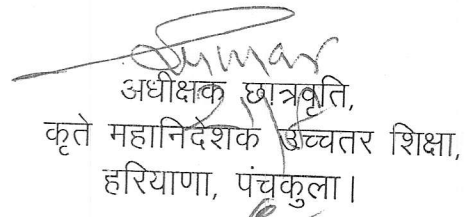 अधीक्षक छात्रवृति,
कृते महानिदेशक उच्चतर शिक्षा,
हरियाणा, पंचकुला।